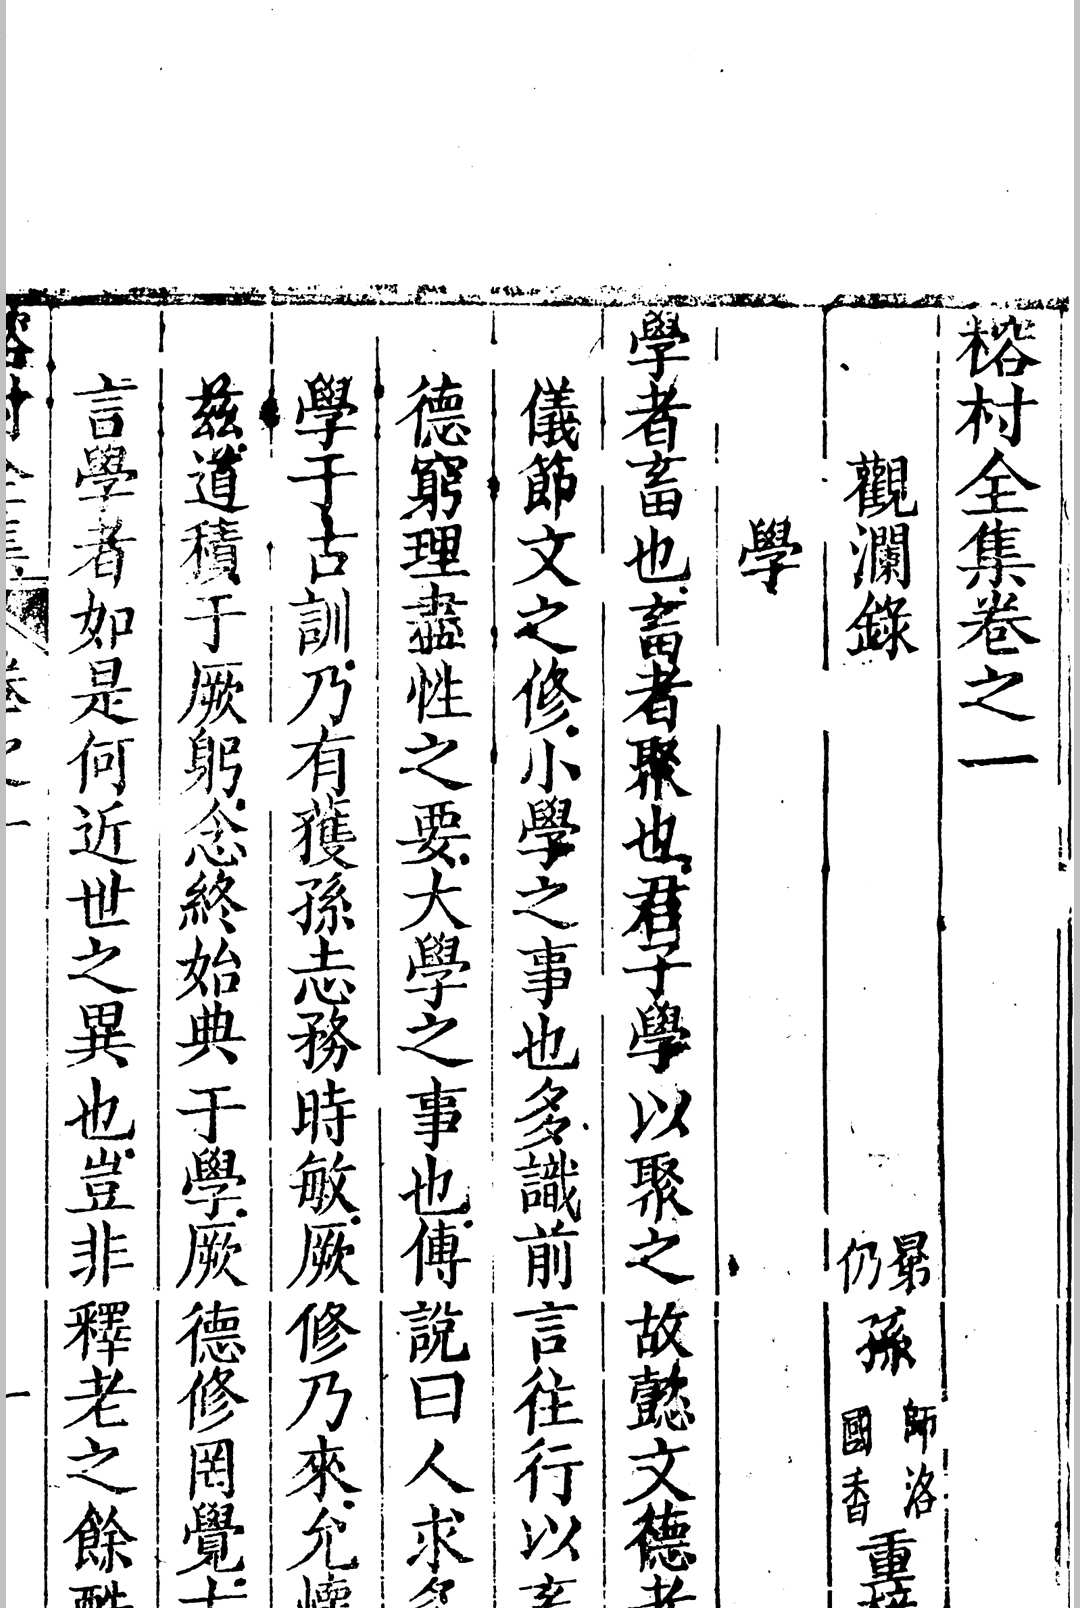 榕村全集卷之一
觀瀾錄
曾孫
仍
師洛
國香
重
學
學者畜也畜者聚也君子學以聚之故懿文德者
儀節文之修小學之事也多識前言往行以畜
德窮理盡性之要大學之事也傅說曰人求多
學于古訓乃有獲孫志務時敏厥修乃來允懷
茲道積于厥躬念終始典于學厥德修罔覺古
言學者如是何近世之異也豈非釋老之餘
榕村全集
卷之一
一